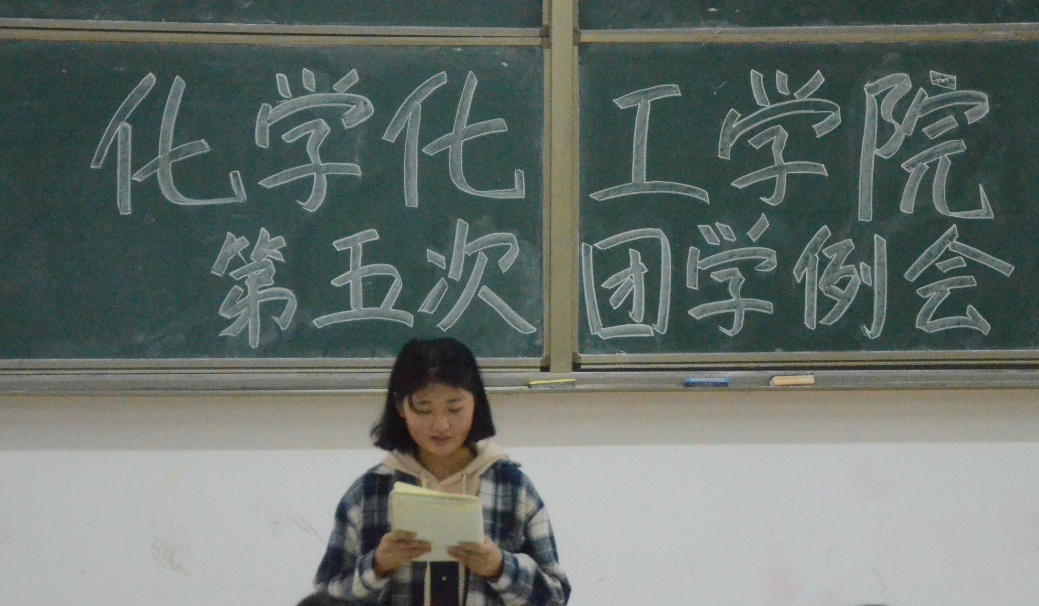 化学化工学院
第五次团学例会